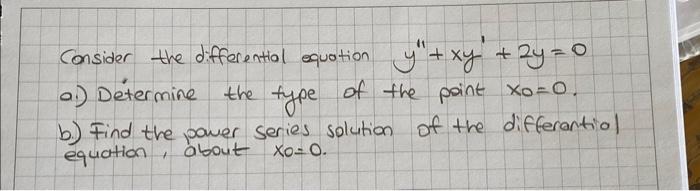 Consider the differential equation y'' + xy' + 2y = 0
a) Determine the type of the point x0=0.
b) Find the power series solution of the differantial
equation, about x0=0.